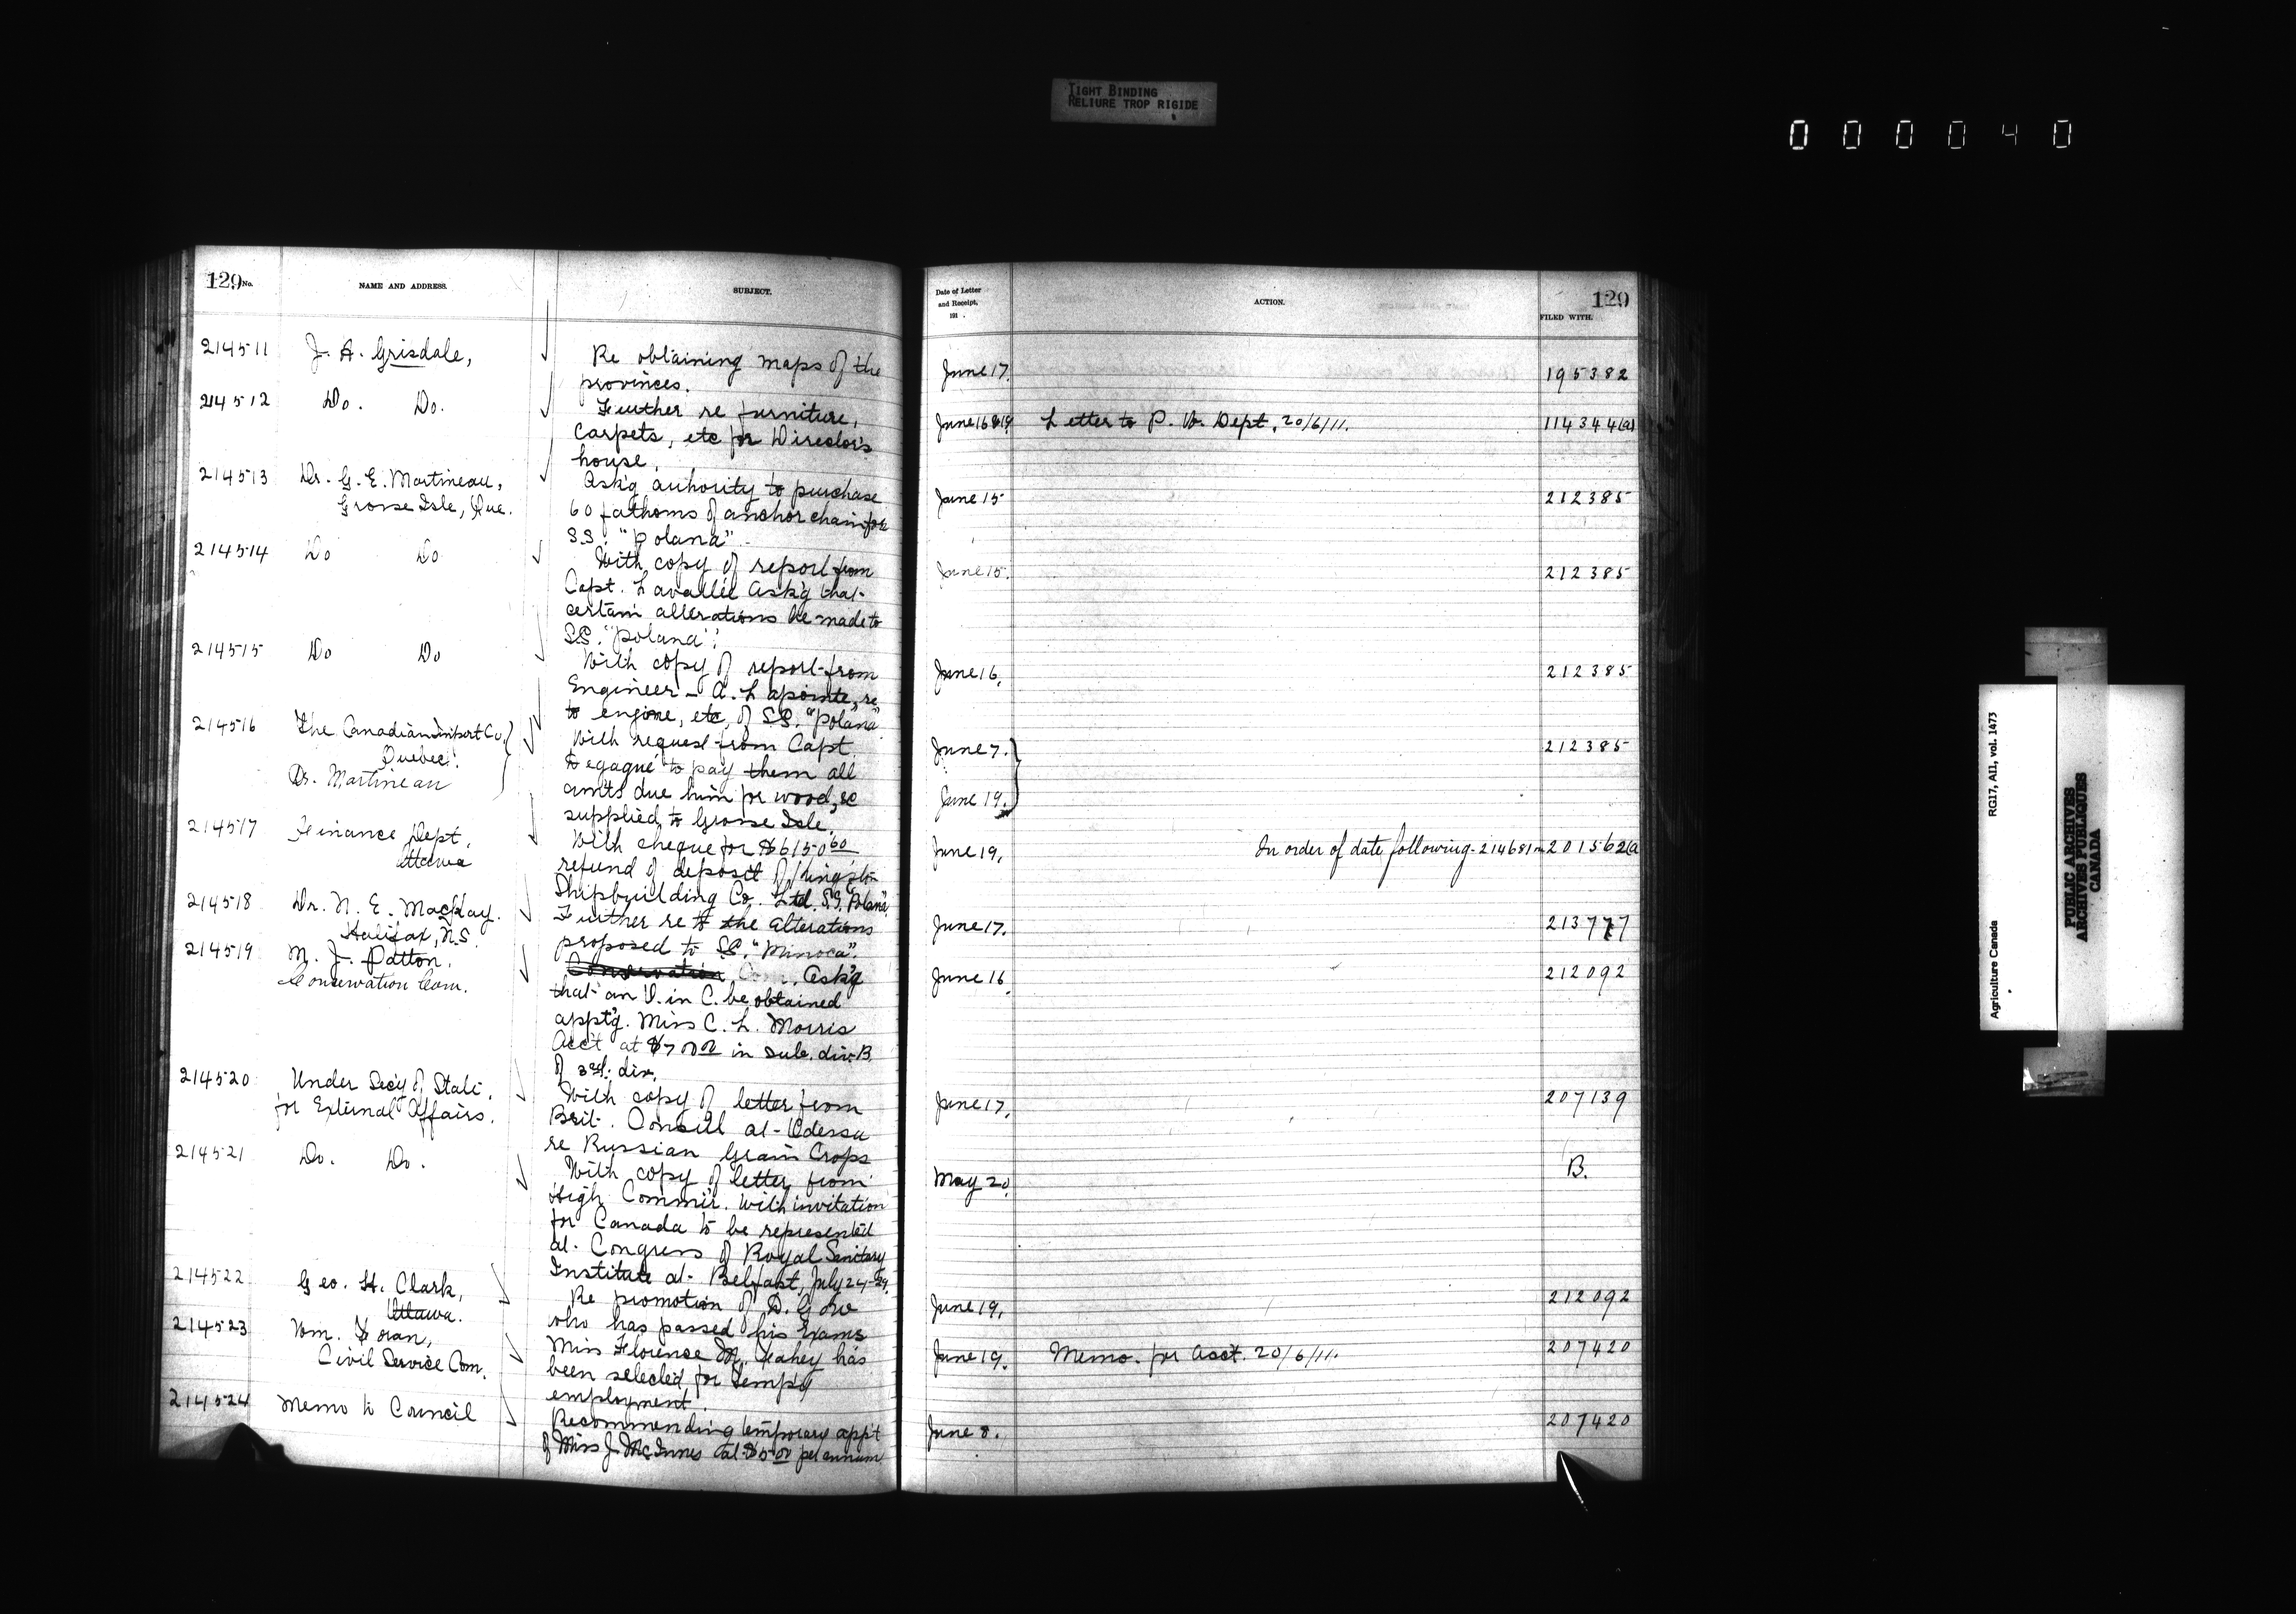 TIGHT BINDING
RELIURE TROP RIGIDE
000040
129 No.
NAME AND ADDRESS.
SUBJECT.
214511
J. A. Grisdale,
Re obtaining maps of the
provinces.
214512
Do. Do.
Further re furniture,
carpets, etc for Director's
house.
214513
Dr. G. E. Martineau,
Grosse Isle, Que.
Ask'g authority to purchase
60 fathoms of anchor chain for
S.S. "Polana".
214514
Do Do
With copy of report from
Capt. Lavallée ask'g that
certain alterations be made to
S.S. "Polana".
214515
Do Do
With copy of report from
Engineer - A. Lapointe, re
to engine, etc, of S.S. "Polana"
214516
The Canadian Import Co.
Quebec.
Dr. Martineau
With request from Capt.
Degagné to pay them all
amts due him for wood, &c
supplied to Grosse Isle.
214517
Finance Dept.
Ottawa
With cheque for $6150.60
refund of deposit of Kingston
Shipbuilding Co. Ltd. S.S. "Polana"
214518
Dr. N. E. MacKay.
Halifax, N.S.
Further re to the alterations
proposed to S.S. "Minoca".
214519
M. J. Patton.
Conservation Com.
Conservation Com. Ask'g
that an O. in C. be obtained
appt'g. Miss C. L. Morris
Acc't at $700.00 in sub. div. B
of 3rd. div.
214520
Under Sec'y of State.
for External Affairs.
With copy of letter from
Brit. Consul at Odessa
re Russian Grain Crops
214521
Do. Do.
With copy of letter from
High Commir. with invitation
for Canada to be represented
at Congress of Royal Sanitary
Institute at Belfast, July 24-29.
214522
Geo. H. Clark,
Ottawa.
Re promotion of D. Gow
who has passed his Exams
214523
Wm. Foran,
Civil Service Com.
Miss Florence M. Leahey has
been selected for temp'y
employment.
214524
Memo to Council
Recommending temporary app't
of Miss J. McInnes at $500 per annum
Date of Letter
and Receipt,
191 .
ACTION.
129
FILED WITH.
June 17. 195382
June 16 & 19 Letter to P. W. Dept, 20/6/11. 114344(a)
June 15 212385
June 15. 212385
June 16, 212385
June 7. 212385
June 19.
June 19, In order of date following 214681 in 201562(a
June 17. 213777
June 16 212092
June 17, 207139
May 20, B.
June 19, 212092
June 19. Memo. for acct. 20/6/11. 207420
June 8. 207420
Agriculture Canada RG17, AII, vol. 1473
PUBLIC ARCHIVES
ARCHIVES PUBLIQUES
CANADA